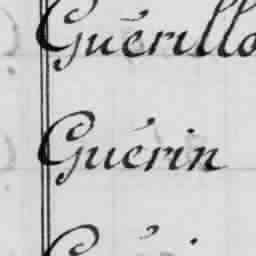 Guérillo
Guérin